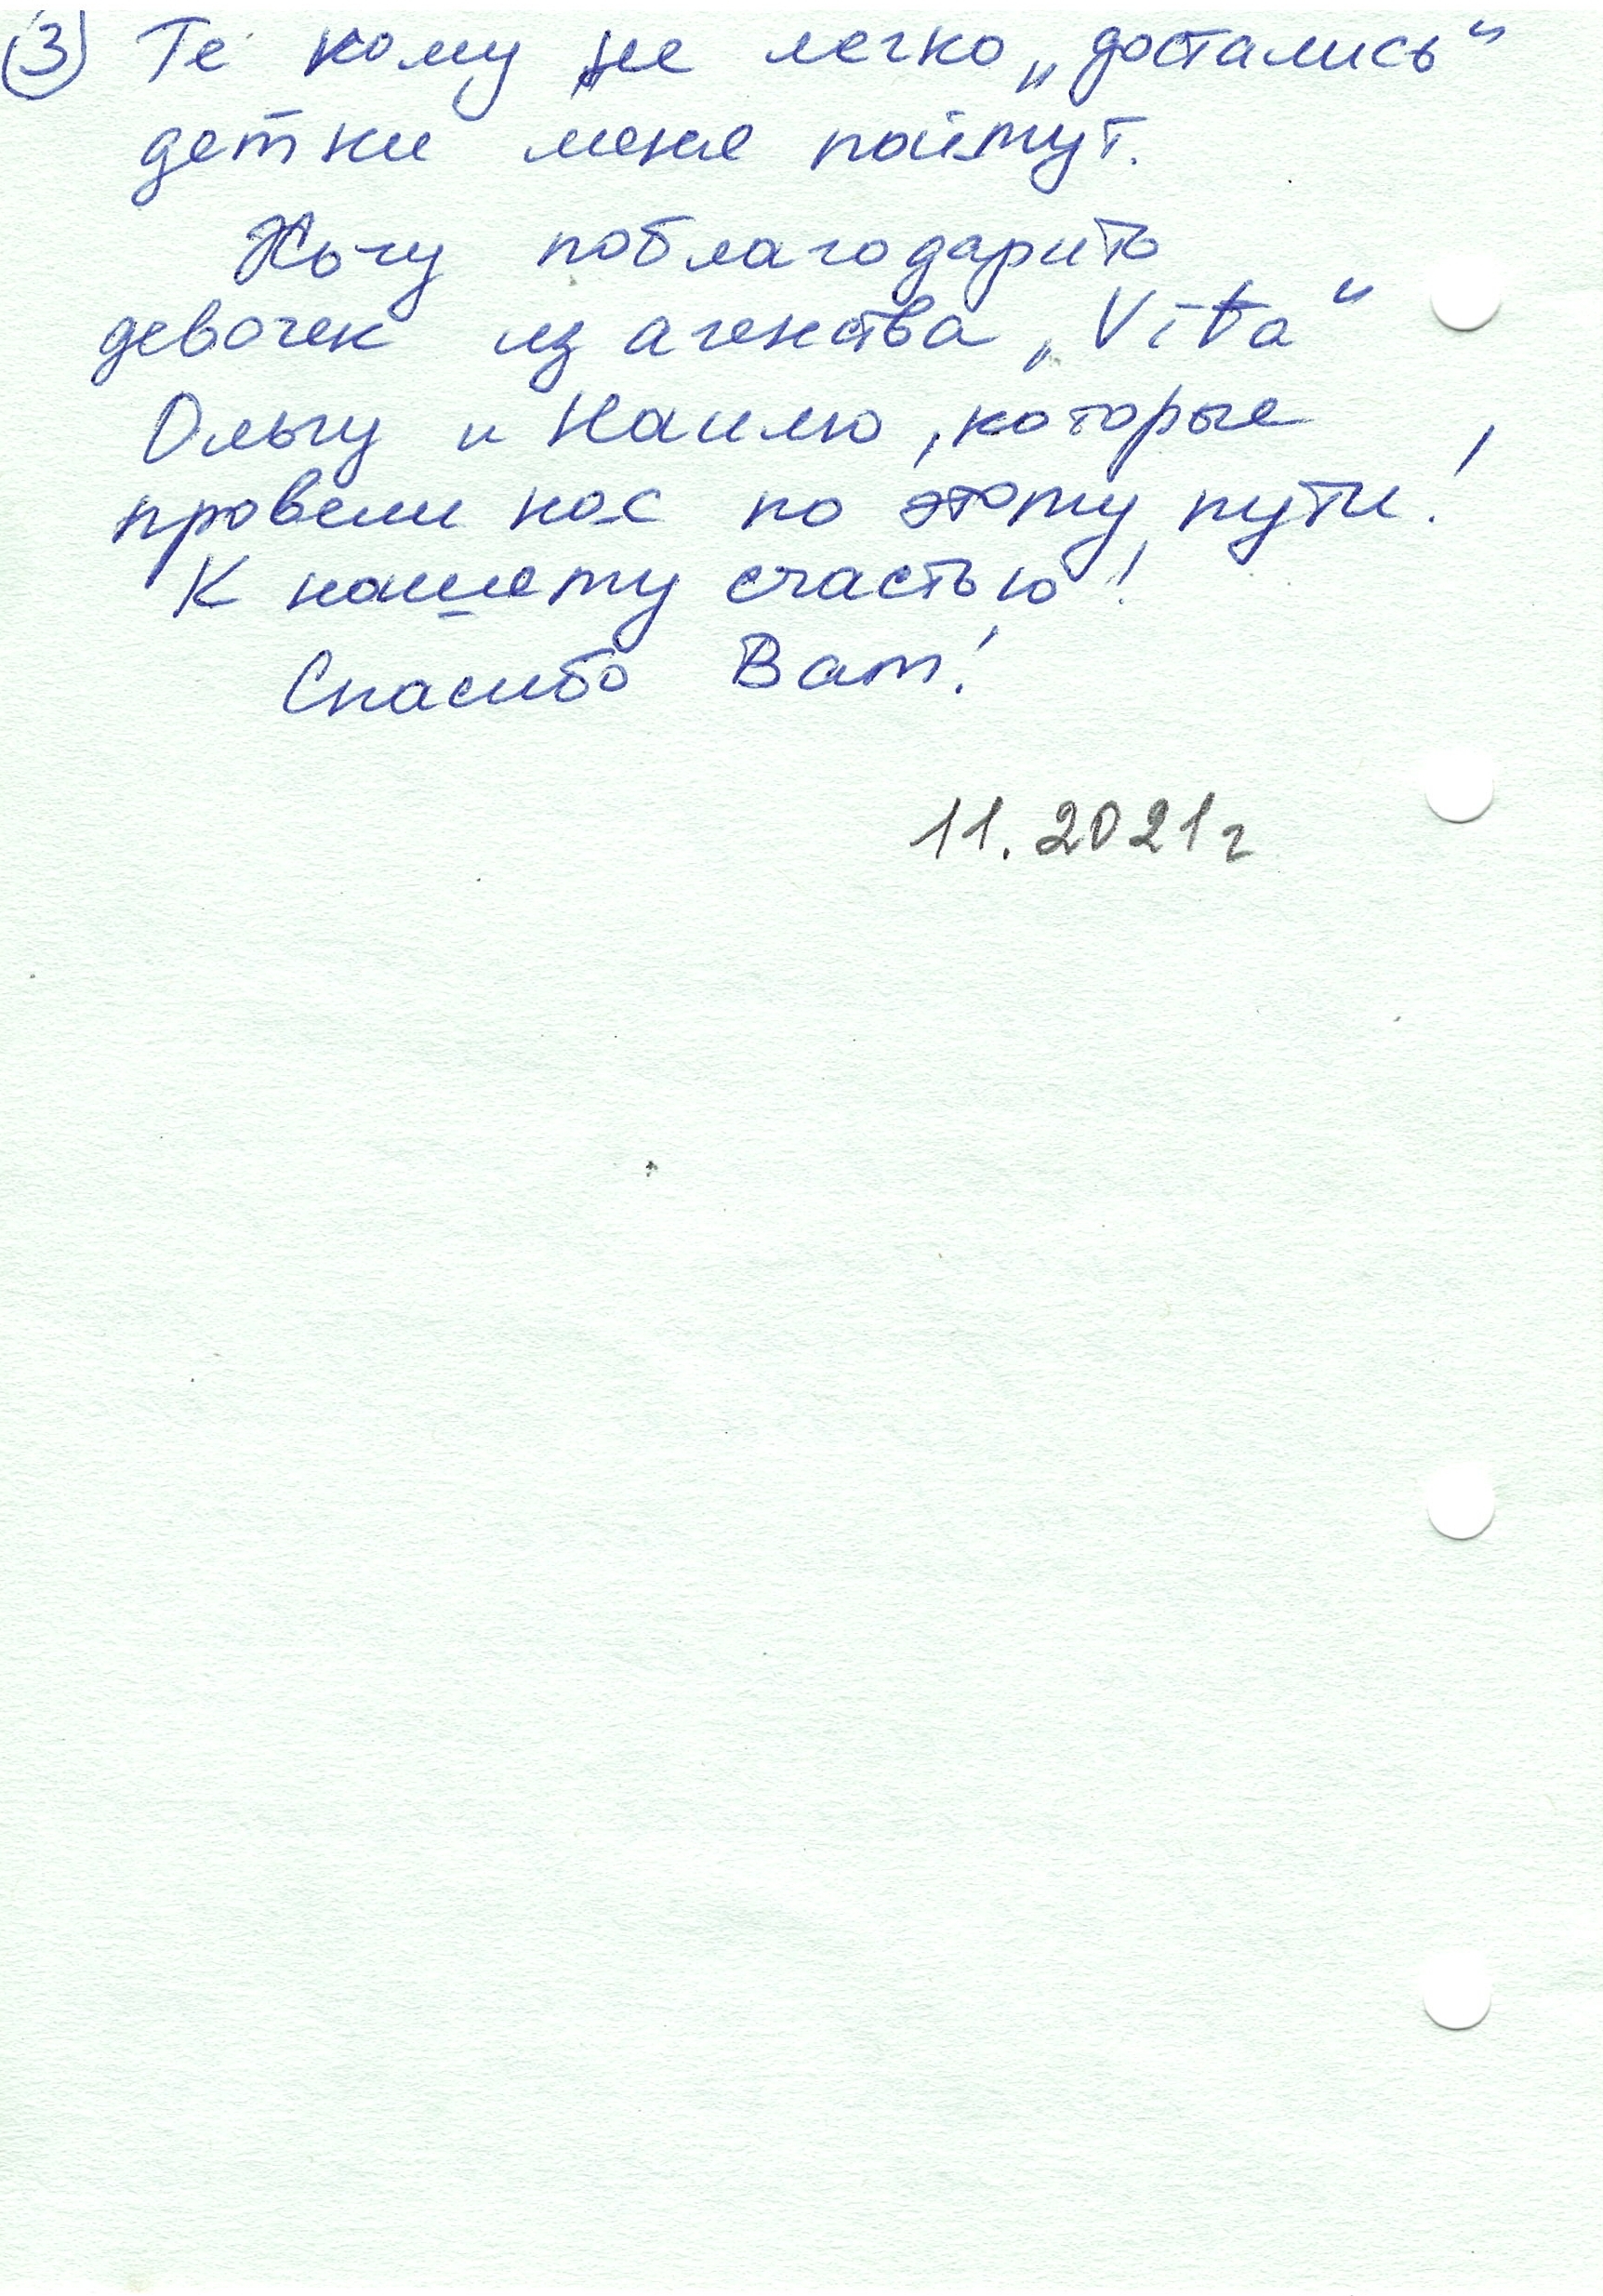 3 Те кому не легко „достались“
детки меня поймут.
Хочу поблагодарить
девочек из агенства „Vita“
Ольгу и Наилю, которые
провели нас по этому пути!
К нашему счастью!
Спасибо Вам!
11.2021г